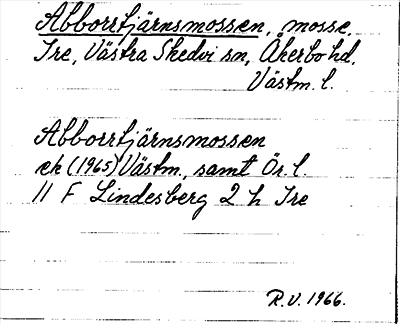 Abborrtjärnsmossen, mosse.
Tre, Västra Skedvi sn, Åkerbo hd.
Västm. l.
Abborrtjärnsmossen
ek (1965) Västm., samt Ör. l.
11 F Lindesberg 2 h Tre
R.V. 1966.